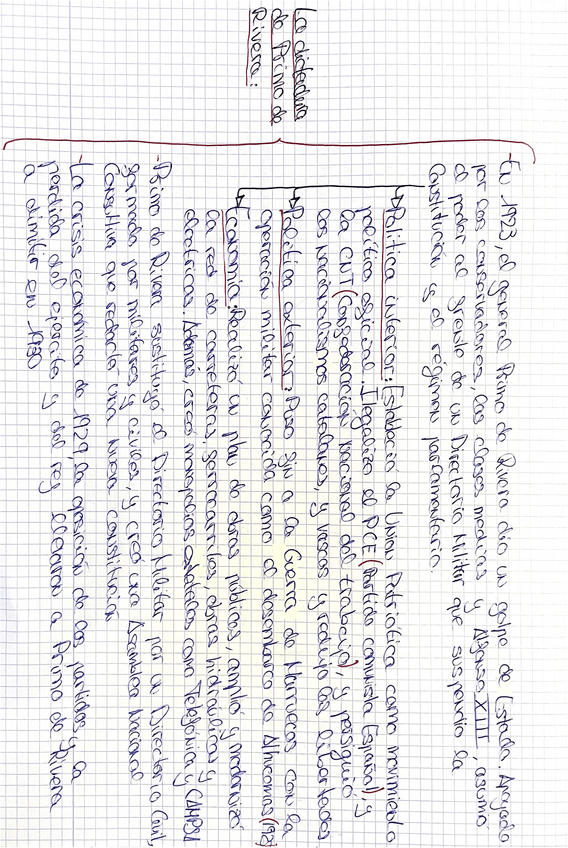 La dictadura
de Primo de
Rivera:
- En 1923, el general Primo de Rivera dio un golpe de Estado. Apoyado
por los conservadores, las clases medias y Alfonso XIII, asumió
el poder al frente de un Directorio Militar que suspendió la
Constitución y el régimen parlamentario.
Política interior: Estableció la Unión Patriótica como movimiento
político oficial. Ilegalizo el PCE (Partido comunista Español) y
la CNT (Confederación nacional del trabajo), y persiguió
los nacionalismos catalanes, y vascos y redujo las libertades
Política exterior: Puso fin a la Guerra de Marruecos con la
operación militar conocida como el desembarco de Alhucemas (192
Economía: Realizó un plan de obras públicas, amplió y modernizó
la red de carreteras, ferrocarriles, obras hidráulicas y
eléctricas. Además, creó monopolios estatales como Telefónica y CAMPSA
- Primo de Rivera sustituyó el Directorio Militar por un Directorio Civil,
formado por militares y civiles, y creó una Asamblea Nacional
Consultiva que redactó una nueva constitución
- La crisis económica de 1929, la oposición de los partidos, y la
pérdida del ejercito y del rey llevaron a Primo de Rivera
a dimitir en 1930